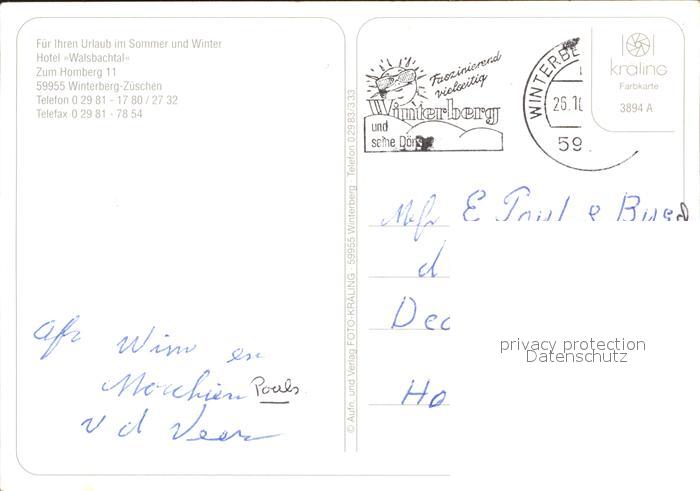 Für Ihren Urlaub im Sommer und Winter
Hotel »Walsbachtal«
Zum Homberg 11
59955 Winterberg-Züschen
Telefon 0 29 81 - 17 80 / 27 32
Telefax 0 29 81 - 78 54
© Aufn. und Verlag FOTO-KRALING · 59955 Winterberg · Telefon 0 29 83/3 33
Faszinierend
vielseitig
Winterberg
und
seine
WINTERBE
26.10
59
kraling
Farbkarte
3894 A
E
d
Dec
Ho
privacy protection
Datenschutz
Afz
Wim en
Pouls
v d Veer